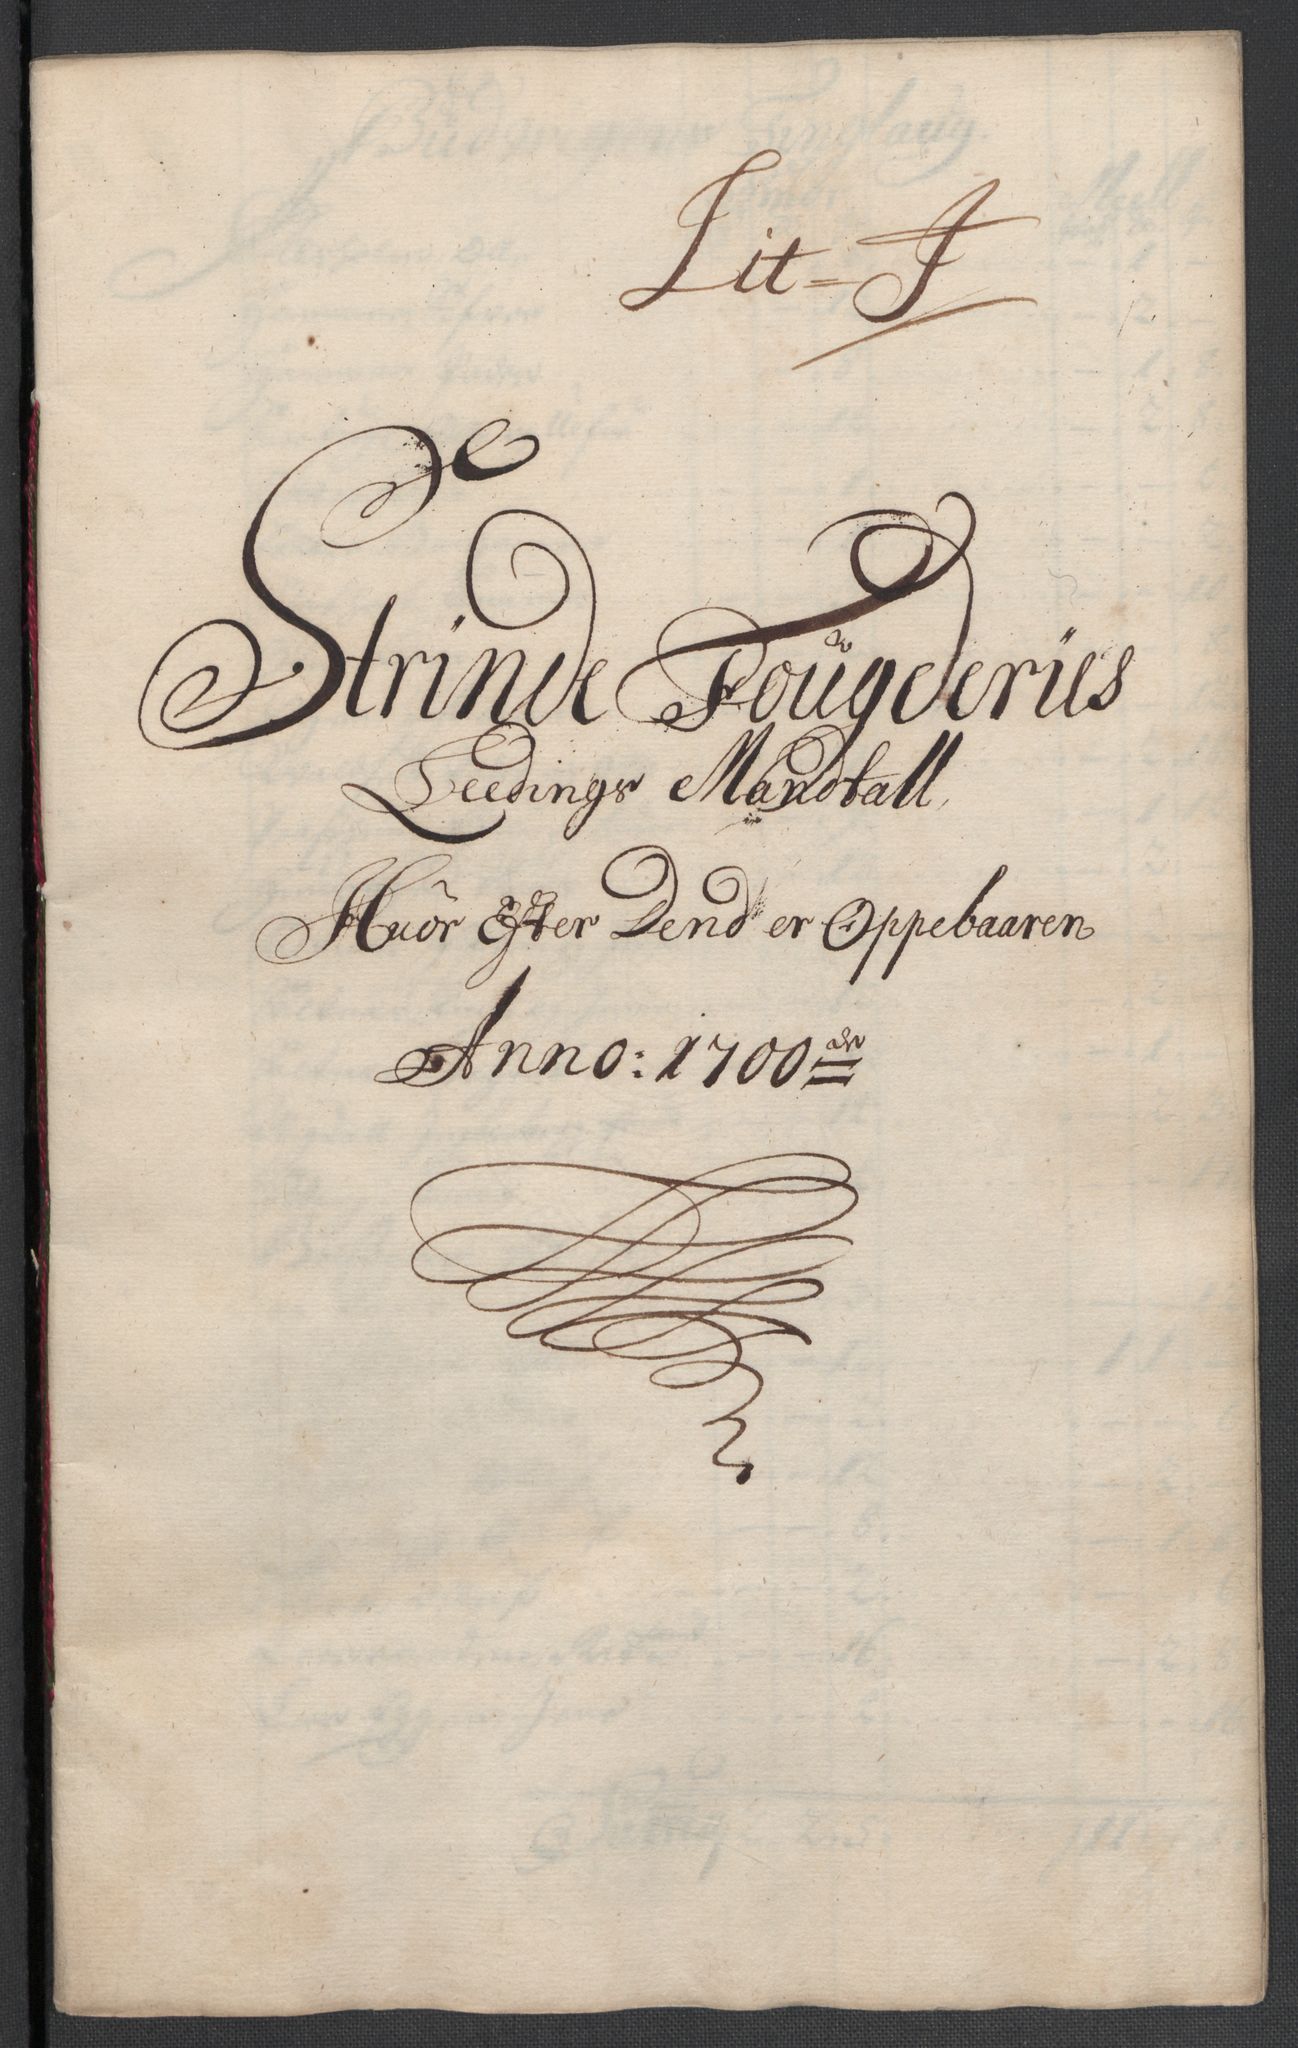 Lit= J
Strinde Fougderies
Leedings Mandtall,
Huor Efter Dend er Oppebaaren
Anno: 1700